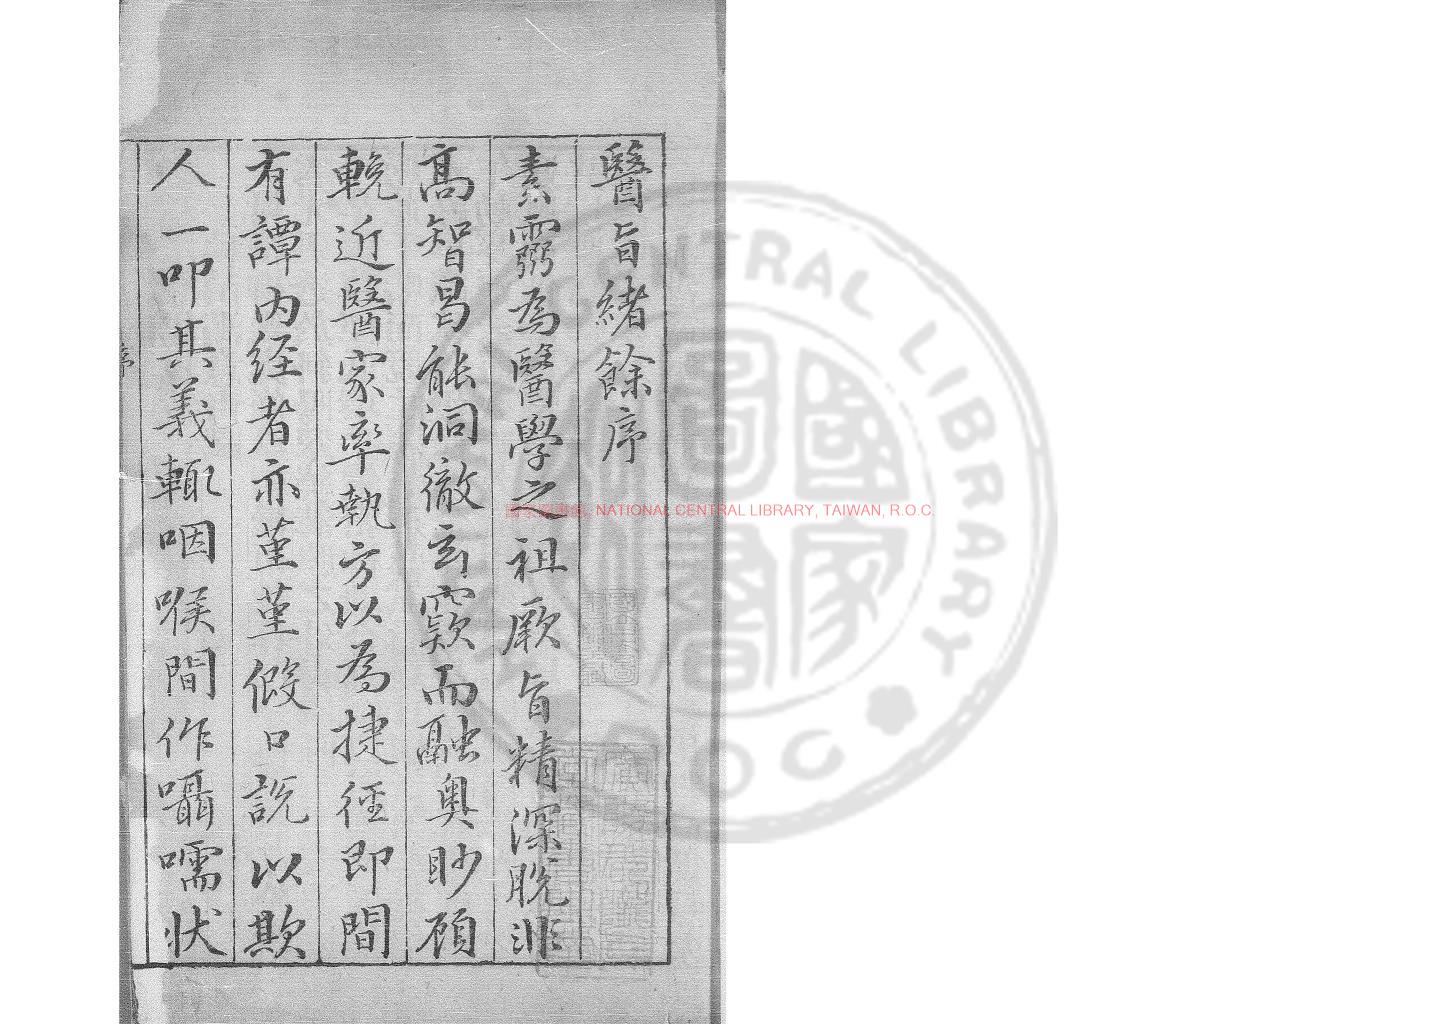 醫旨緒餘序
素靈為醫學之祖厥旨精深脫非
高智曷能洞徹玄窾而融奧眇頋
輓近醫家率執方以為捷徑即間
有譚內経者亦堇堇假口說以欺
人一叩其義輒咽喉間作囁嚅狀
序
國家圖書館, NATIONAL CENTRAL LIBRARY, TAIWAN, R.O.C
CENTRAL LIBRARY
R.O.C
國家圖書